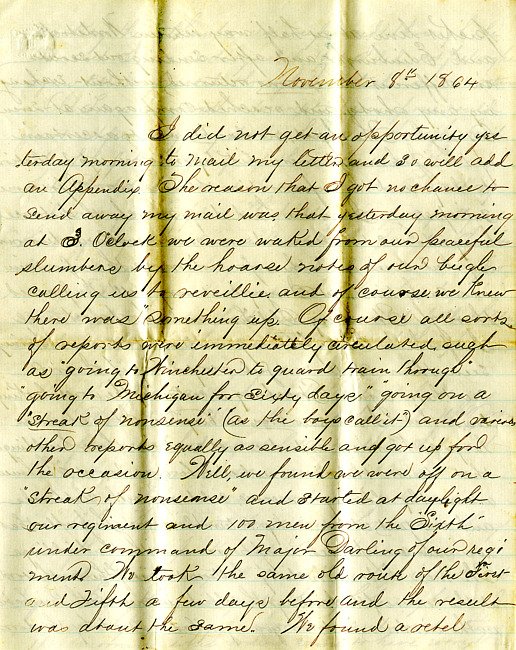 November 8th 1864
I did not get an opportunity yes
terday morning to mail my letter and so will add
an Appendix The reason that I got no chance to
send away my mail was that yesterday morning
at 3 Oclock we were waked from our peaceful
slumbers by the hoarse notes of our bugle
calling us to reveillie and of course we knew
there was "something up. Of course all sorts
of reports were immediately circulated such
as "going to Winchester to guard train through"
"going to Michigan for sixty days," "going on a
"streak of nonsense" (as the boys call it) and various
other reports equally as sensible and got up for
the occasion. Well, we found we were off on a
"streak of nonsense" and started at daylight
our regiment and 100 men from the "Sixth"
under command of Major Darling of our regi
ment We took the same old route of the First
and Fifth a few days before and the result
was about the same. We found a rebel